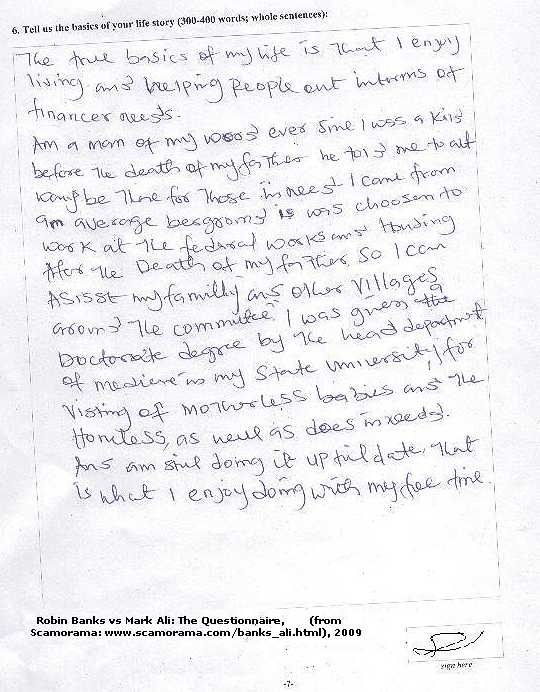 6. Tell us the basics of your life story (300-400 words; whole sentences):
The true basics of my life is that I enjoy
living and helping people out interms of
financer needs.
Am a man of my woord ever sine I was a kid
before the death of my father he told me to alt
be there for those in need I came from
an average bergroung is was choosen to
work at the federal works and Housing
After the Death of my father, so I can
Asisst my familly and other Villages
around the committee. I was given a
Doctorate degree by the head department
of mediene in my State University, for
Visting of motherless babies and the
Homless, as well as does in need.
And am still doing it up till date, that
is what I enjoy doing with my free time.
Robin Banks vs Mark Ali: The Questionnaire, (from
Scamorama: www.scamorama.com/banks_ali.html), 2009
sign here
-7-